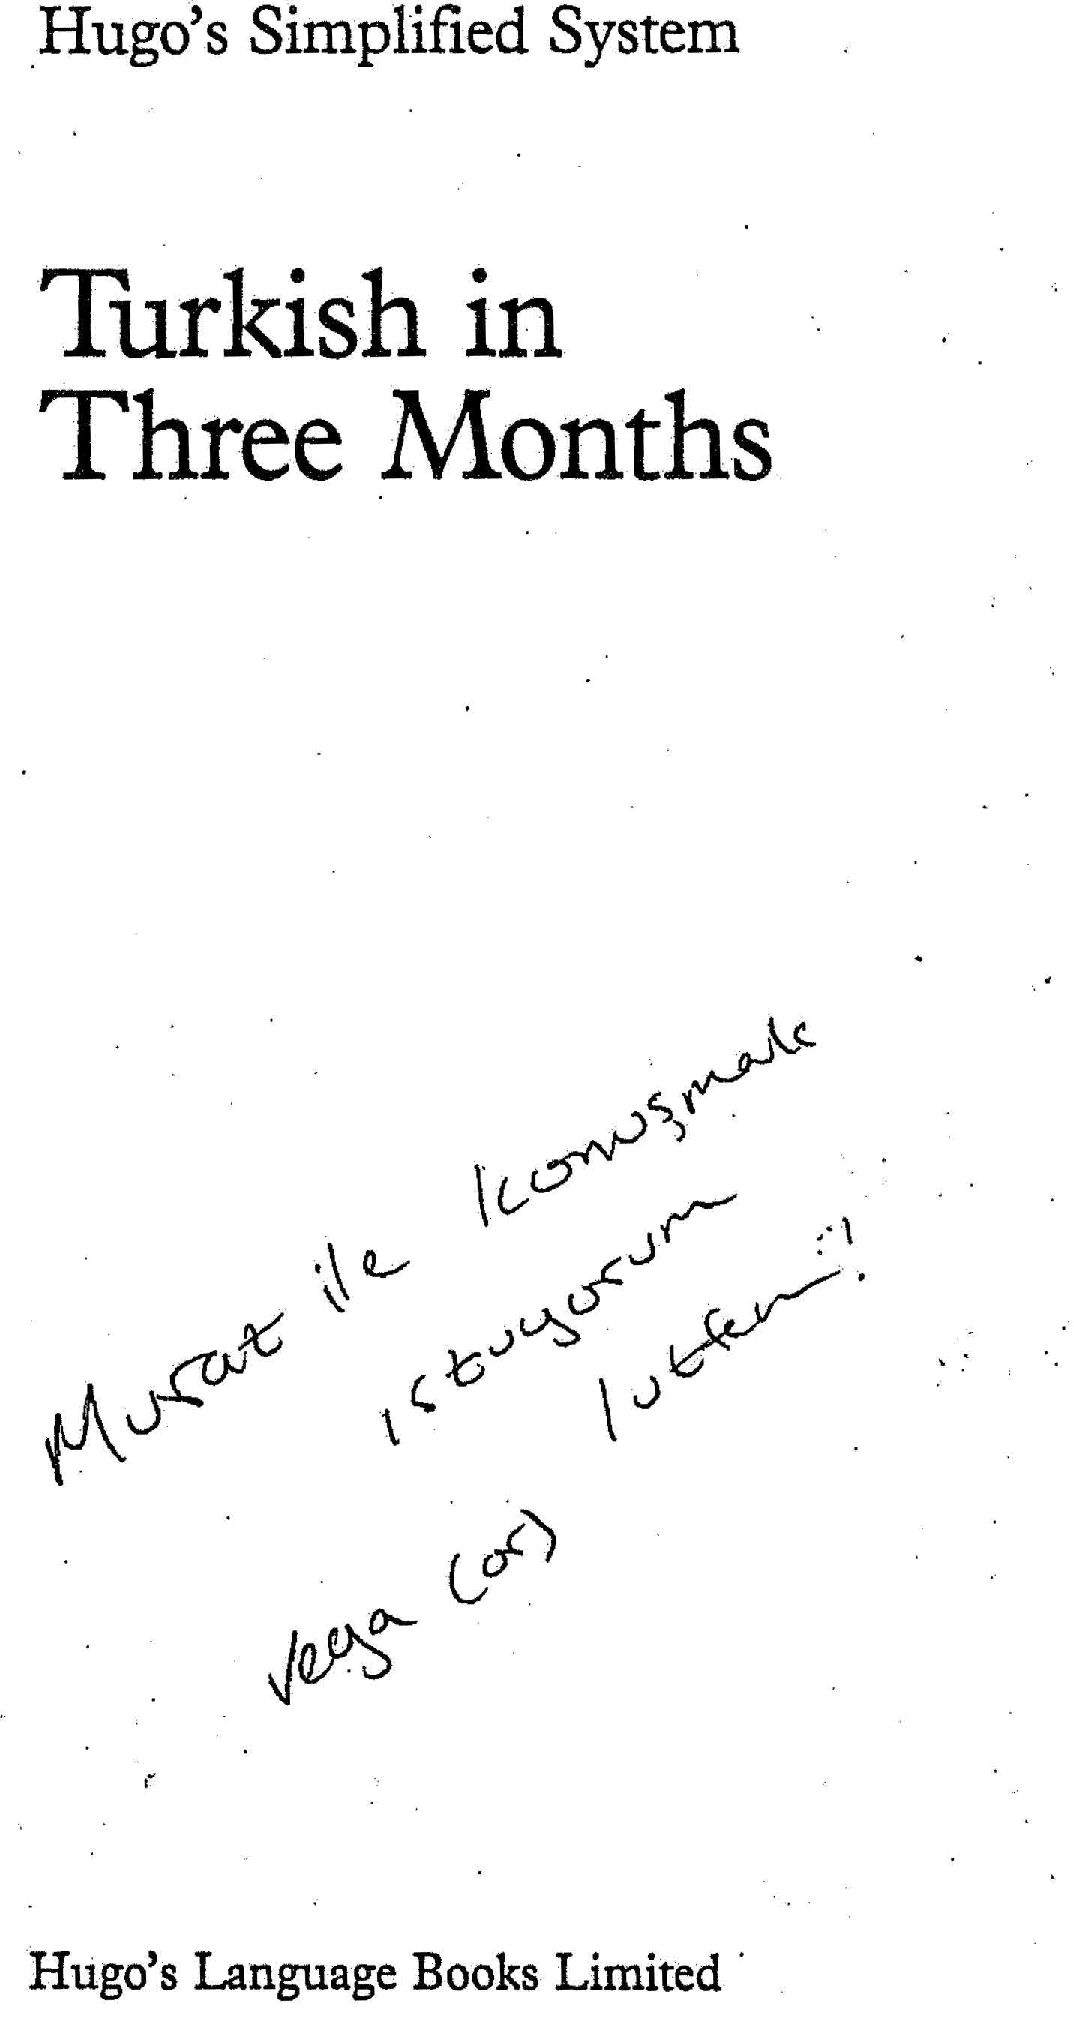 Hugo's Simplified System
Turkish in
Three Months
Murat ile konuşmak
istuyorum
lutfen
veya (or)
Hugo's Language Books Limited